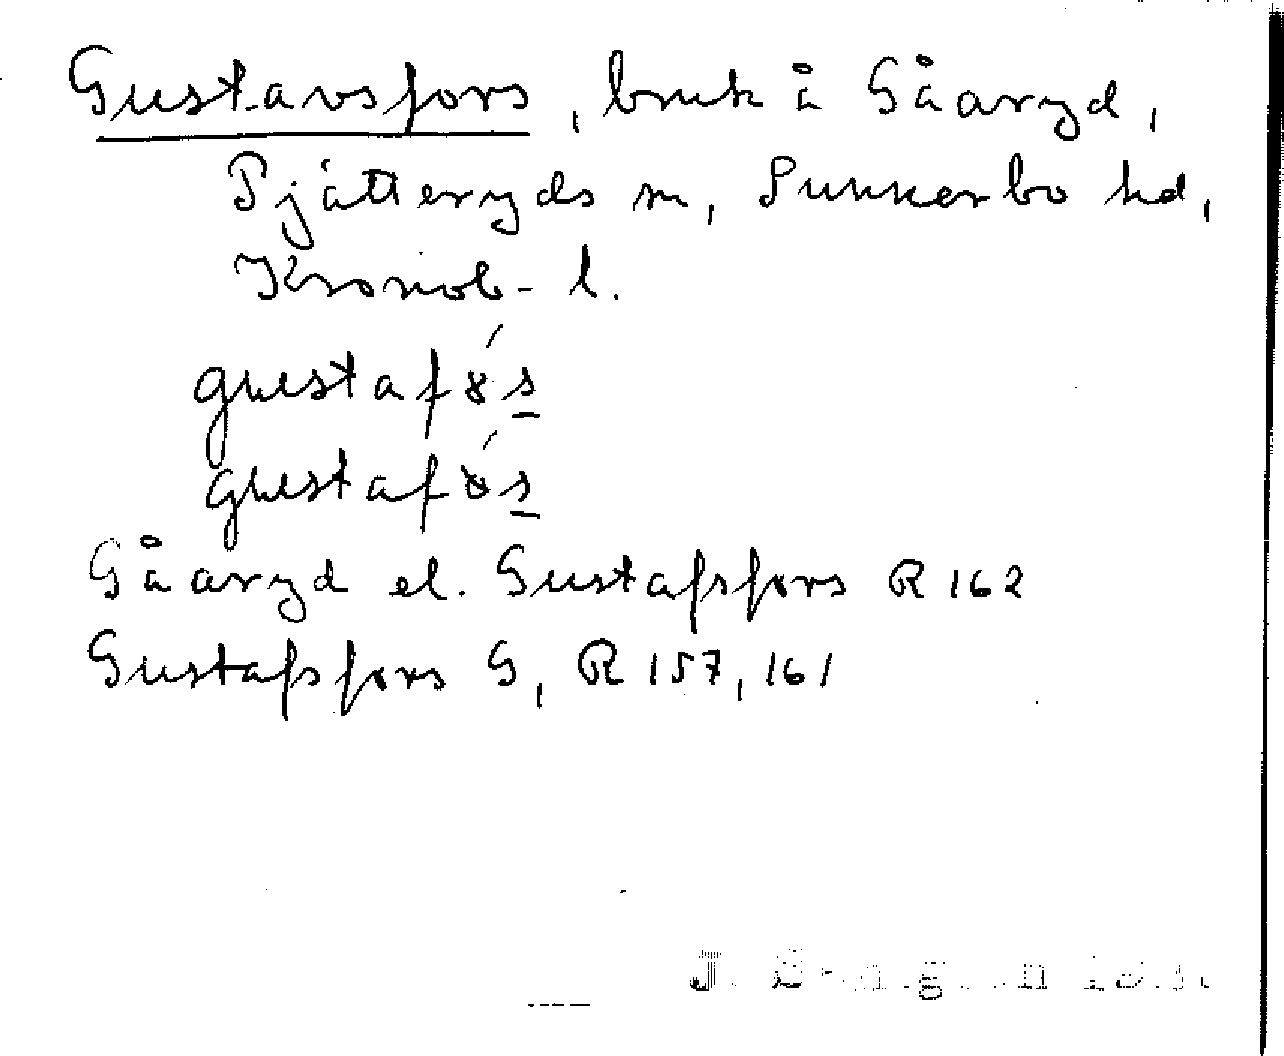 Gustavsfors, bruk å Gåaryd,
Pjätteryds sn, Sunnerbo hd,
Kronob- l.
gustaføs
gustaføs
Gåaryd el. Gustafsfors R 162
Gustafsfors G, R 157, 161
J.